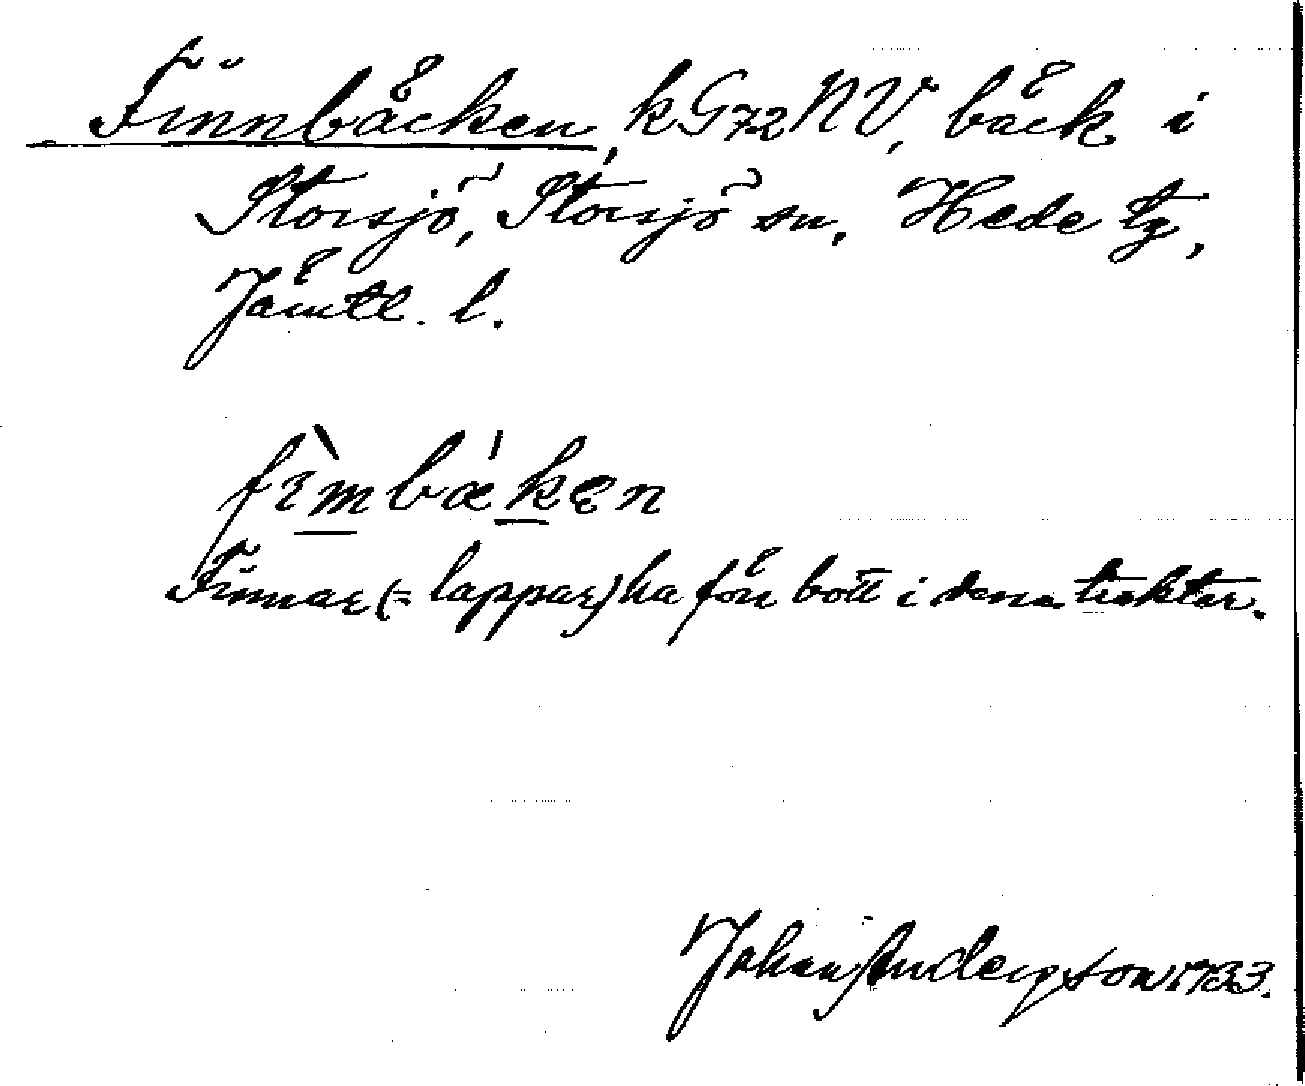 Finnbäcken, kG72NV, bäck i
Storsjö, Storsjö sn, Hede tg,
Jämtl. l.
fìmbǽkɛn
Finnar (= lappar) ha förr bott i dessa trakter.
Johan Anderson 1933.